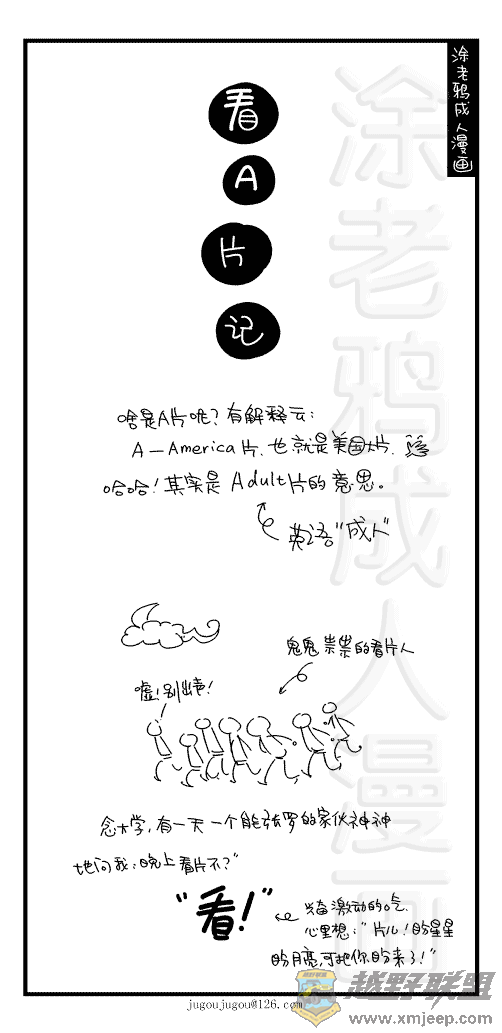 涂老鸦成人漫画
涂老鸦成人漫画
看
A
片
记
啥是A片呢?有解释云:
A—America片,也就是美国大片.
哈哈!其实是Adult片的意思。
英语"成人"
鬼鬼祟祟的看片人
嘘!别出声!
念大学,有一天一个能张罗的家伙神神
地问我:晚上看片不?"
"看!"
兴奋激动的吃
心里想:"片儿!盼星星
盼月亮,可把你盼来了!"
越野联盟
jugoujugou@126.com
www.xmjeep.com